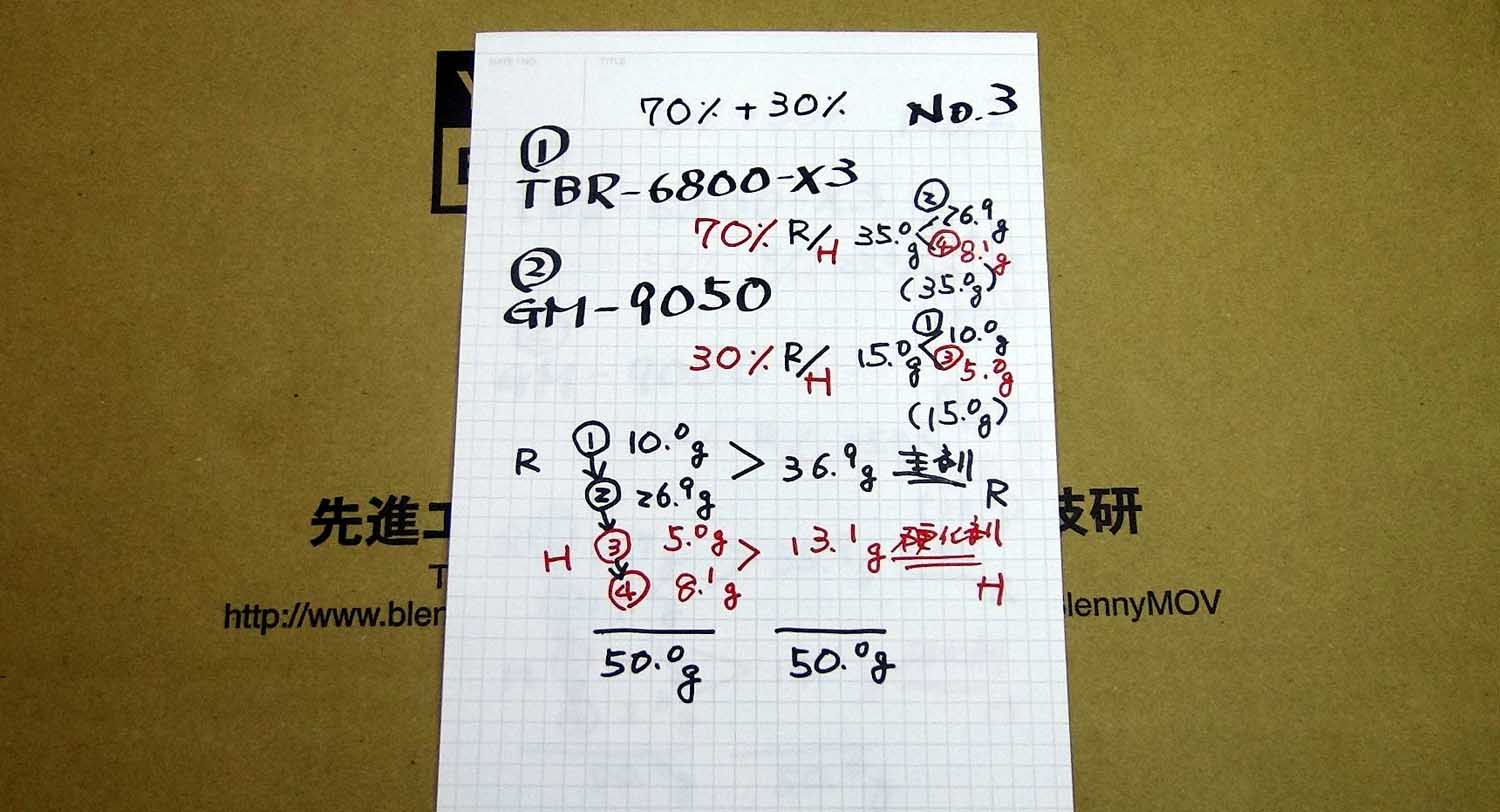 DATE / NO. TITLE
70% + 30% No.3
①
TBR-6800-X3
70% R/H 35.0g < ② 26.9g
④ 8.1g
(35.0g)
②
GM-9050
30% R/H 15.0g < ① 10.0g
③ 5.0g
(15.0g)
R ① 10.0g > 36.9g 主剤
② 26.9g R
H ③ 5.0g > 13.1g 硬化剤
④ 8.1g H
50.0g 50.0g
先進工
技研
http://www.blen
lennyMOV